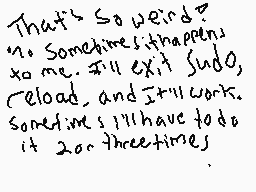 That's so weird?
no sometimes it happens
to me. I'll exit sudo,
reload, and It'll work.
Sometimes I'll have to do
it 2 or three times
.